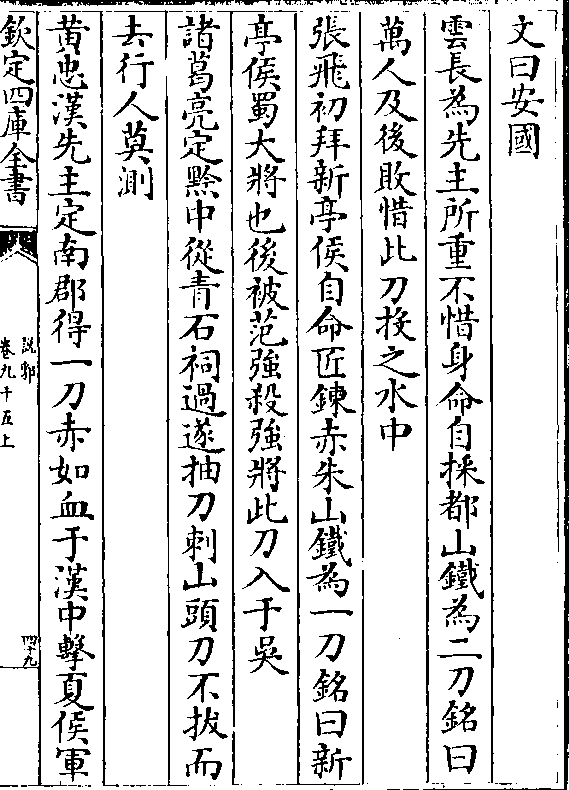 文曰安國
雲長為先主所重不惜身命自採都山鐵為二刀銘曰
萬人及後敗惜此刀投之水中
張飛初拜新亭侯自命匠鍊赤朱山鐵為一刀銘曰新
亭侯蜀大將也後被范強殺強將此刀入于吳
諸葛亮定黔中從青石祠過遂抽刀刺山頭刀不拔而
去行人莫測
黄忠漢先主定南郡得一刀赤如血于漢中擊夏侯軍
欽定四庫全書
說郛
卷九十五上
四十九